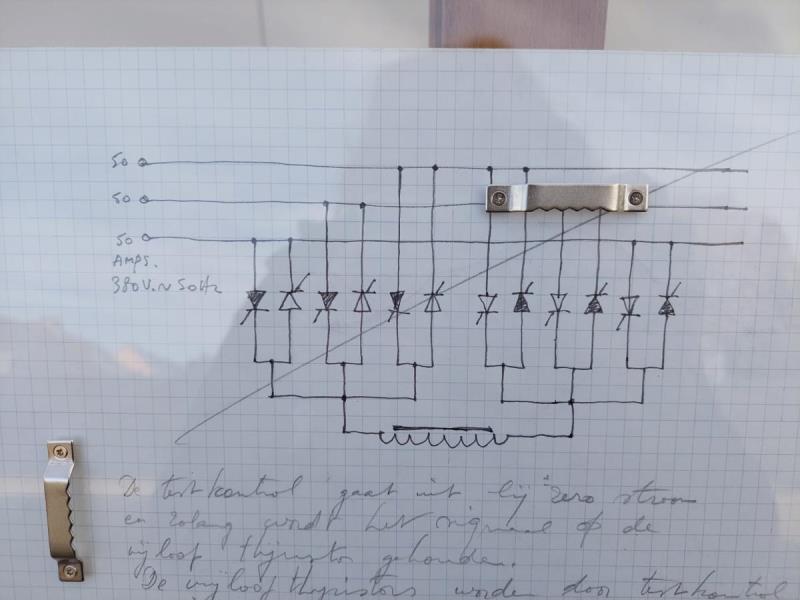 50
50
50
AMPS.
380V.~50Hz
De testkontrol gaat uit bij zero stroom
en zolang wordt het signaal op de
vrijloop thyristor gehouden.
De vrijloop thyristors worden door testkontrol